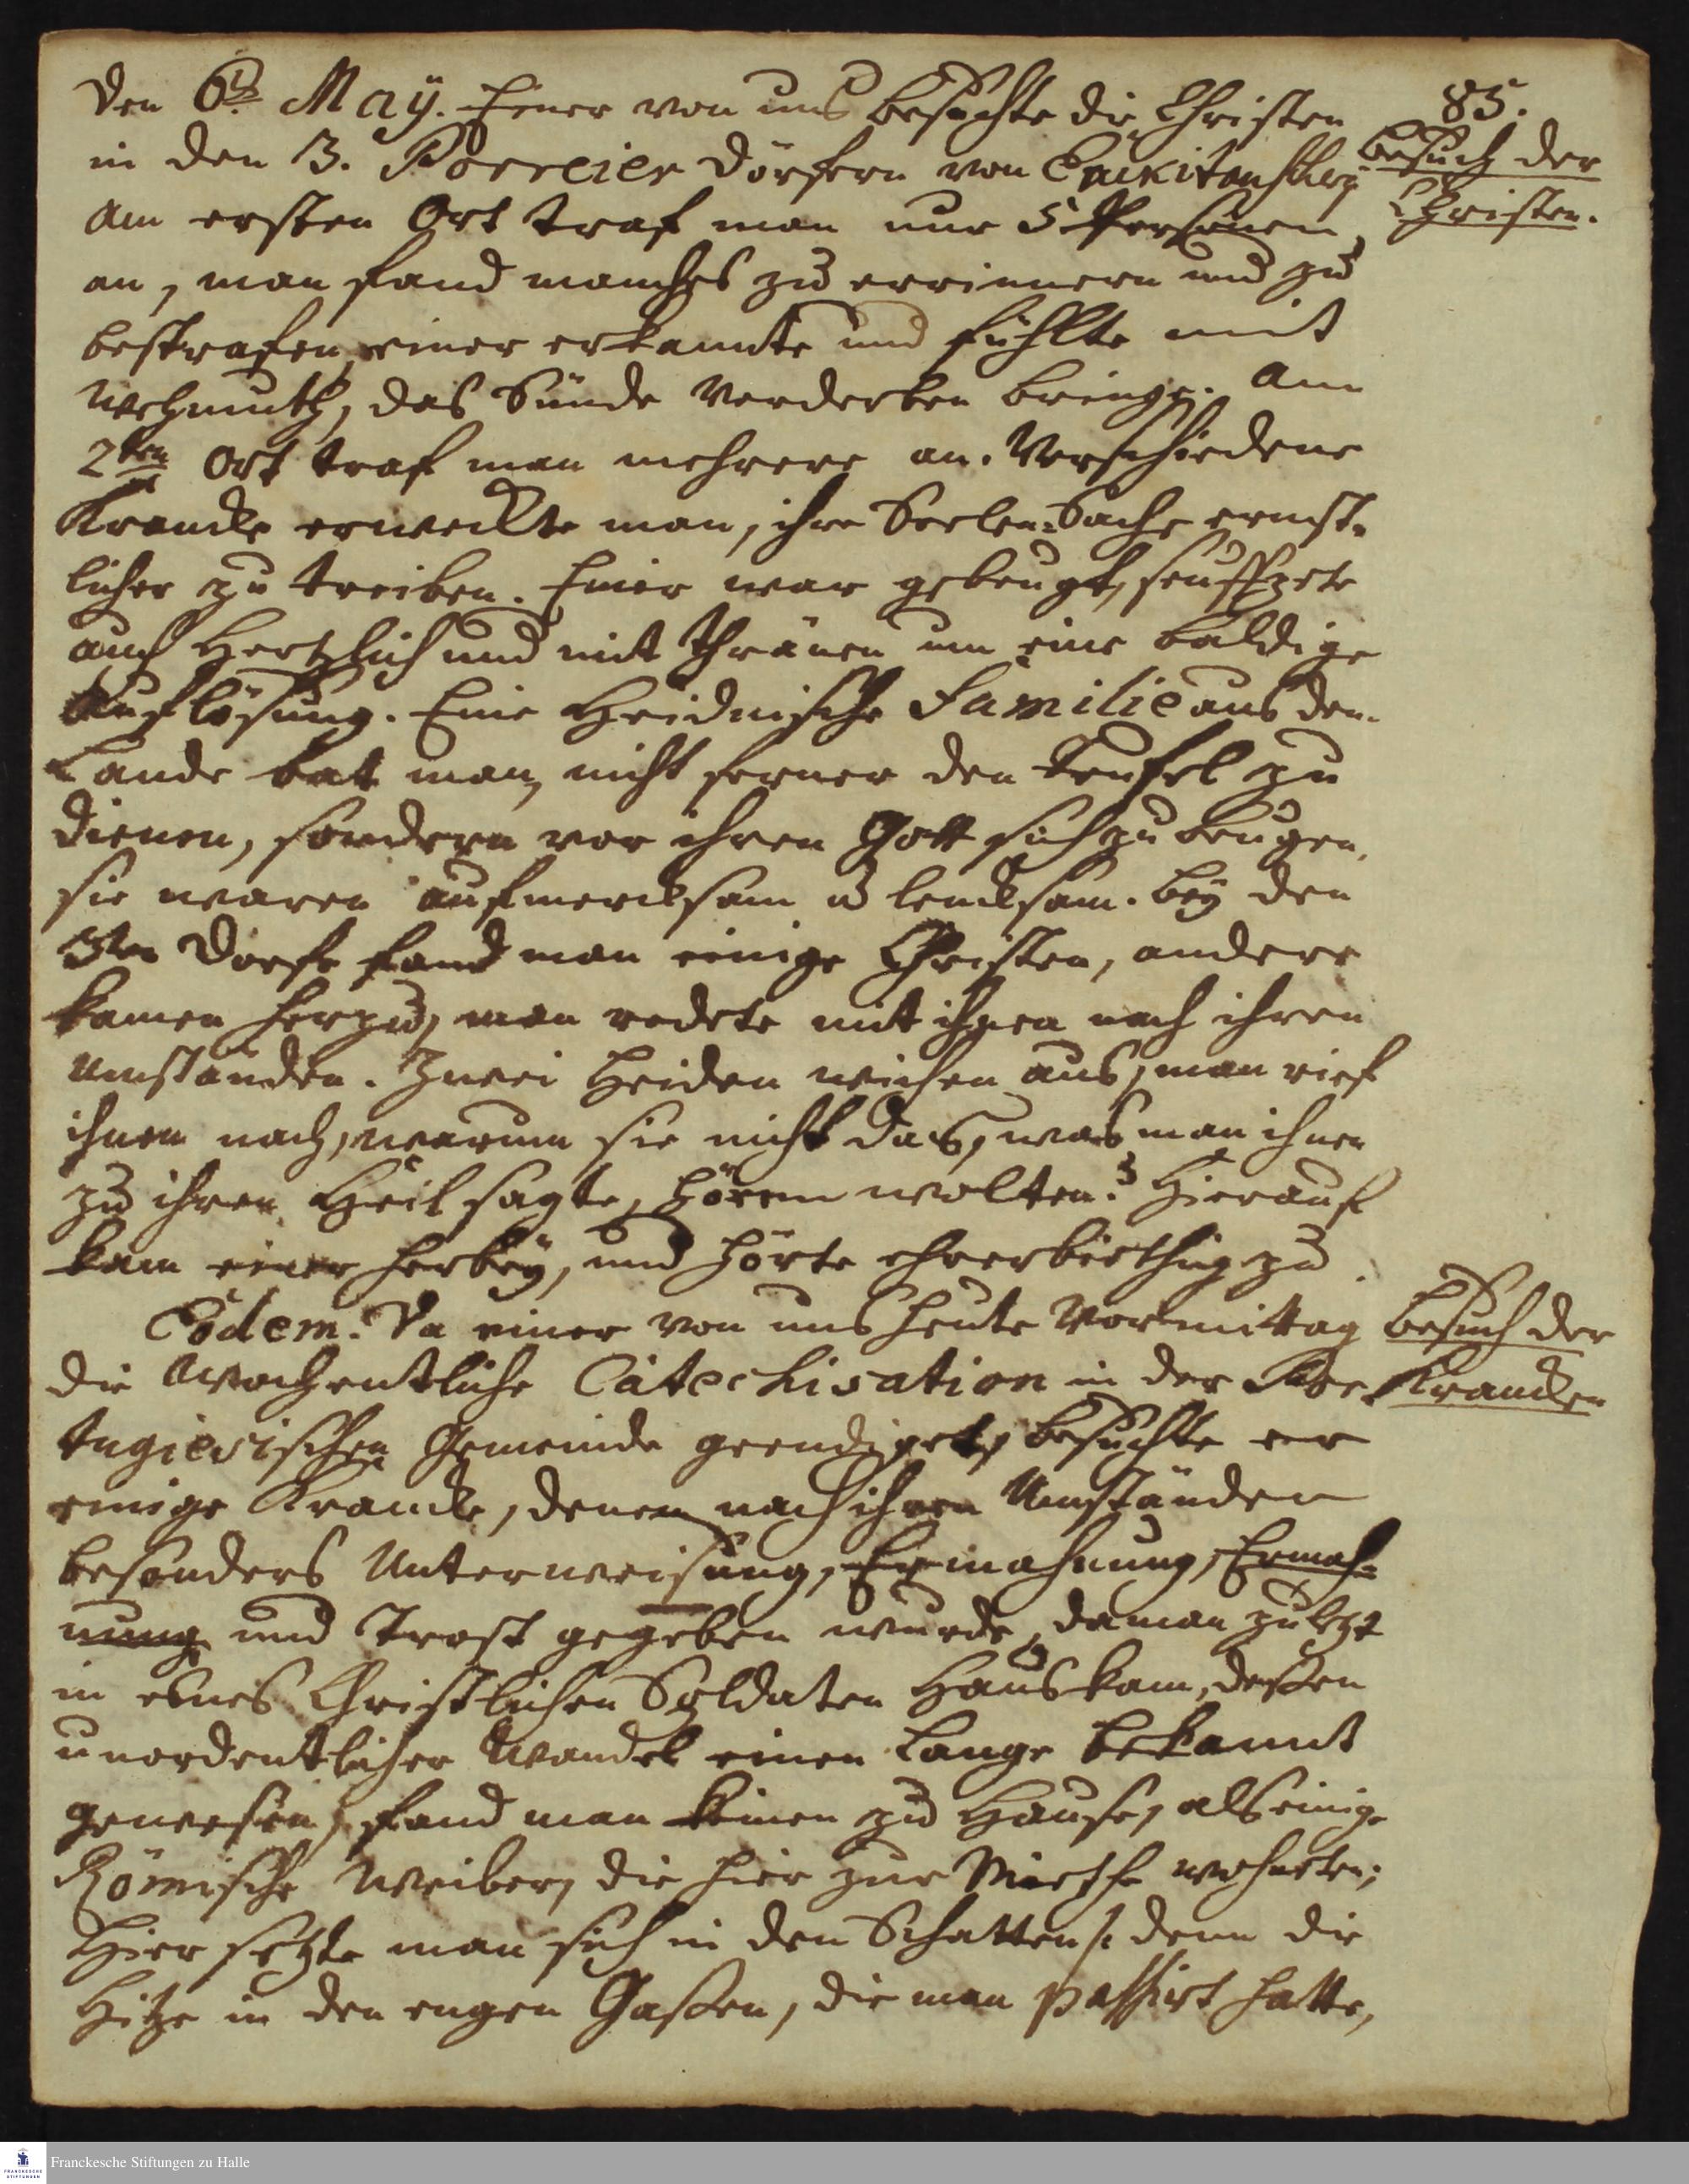 85.
Den 6ᵗᵉ May. Einer von uns besuchte die Christen
in den 3. Porreier Dörfern von
Besuch der
Christen.
Am ersten Ort traf man nur 5 Personen
an, man fand manches zu errinnern und zu
bestrafen, einer erkannte und fühlte mit
Wehmuth, das Sünde Verderben bringe. Am
2ten Ort traf man mehrere an. Verschiedene
Krancke erweckte man, ihre Seelen-Sache ernst-
licher zu treiben. Einer war gebeugt, seuffzete
auch Hertzlich und mit Thränen um eine baldige
Auflösung. Eine Heidnische Familie aus den
Lande bat man, nicht ferner den Teufel zu
dienen, sondern vor ihren Gott sich zu beugen,
sie waren aufmercksam u lencksam. Bey den
3ten Dorfe fand man einige Christen, andere
kamen herzu, man redete mit ihnen nach ihren
Umständen. Zwei Heiden wichen aus, man rief
ihnen nach, warum sie nicht das, was man ihnen
zu ihren Heil sagte, hören wolten? Hierauf
kam einer herbey, und hörte ehrerbiethig zu.
Eodem. Da einer von uns heute Vormittag
Besuch der
Krancken
die Wochentliche Catechisation in der Por-
tugiesischen Gemeinde geendiget, besuchte er
einige Krancke, denen nach ihren Umständen
besonders Unterweisung, Ermahnung, Ermah-
nung und Trost gegeben wurde, da man zuletzt
in eines Christlichen Soldaten Haus kam, deßen
unordentlicher Wandel einen Lange bekannt
gewesen, fand man keinen zu Hause, als einige
Römische Weiber, die hier zur Miethe wohnten;
Hier setzte man sich in den Schatten /: denn die
Hitze in den engen Gaßen, die man passirt hatte,
Franckesche Stiftungen zu Halle
FRANCKESCHE
STIFTUNGEN